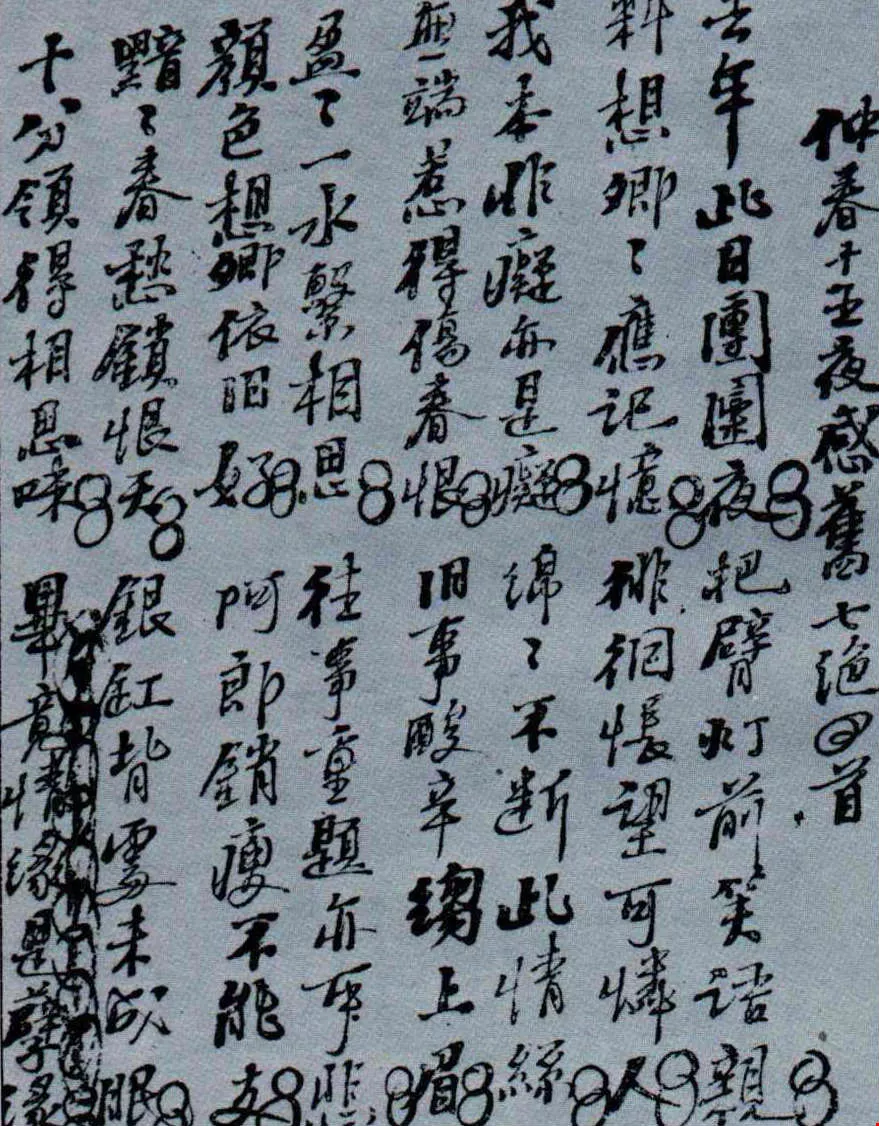 仲春十五夜感舊七绝四首
去年此日團圞夜 把臂灯前笑语親
料想卿〻應記憶 徘徊悵望可憐人
我本非癡亦是癡 綿〻不断此情絲
無端惹得傷春恨 旧事酸辛縐上眉
盈〻一水繫相思 往事重題亦可悲
顏色想卿依旧好 阿郎銷瘦不能支
黯〻春愁鎖恨天 銀缸背處未成眠
十分領得相思味 畢竟情緣是孽緣